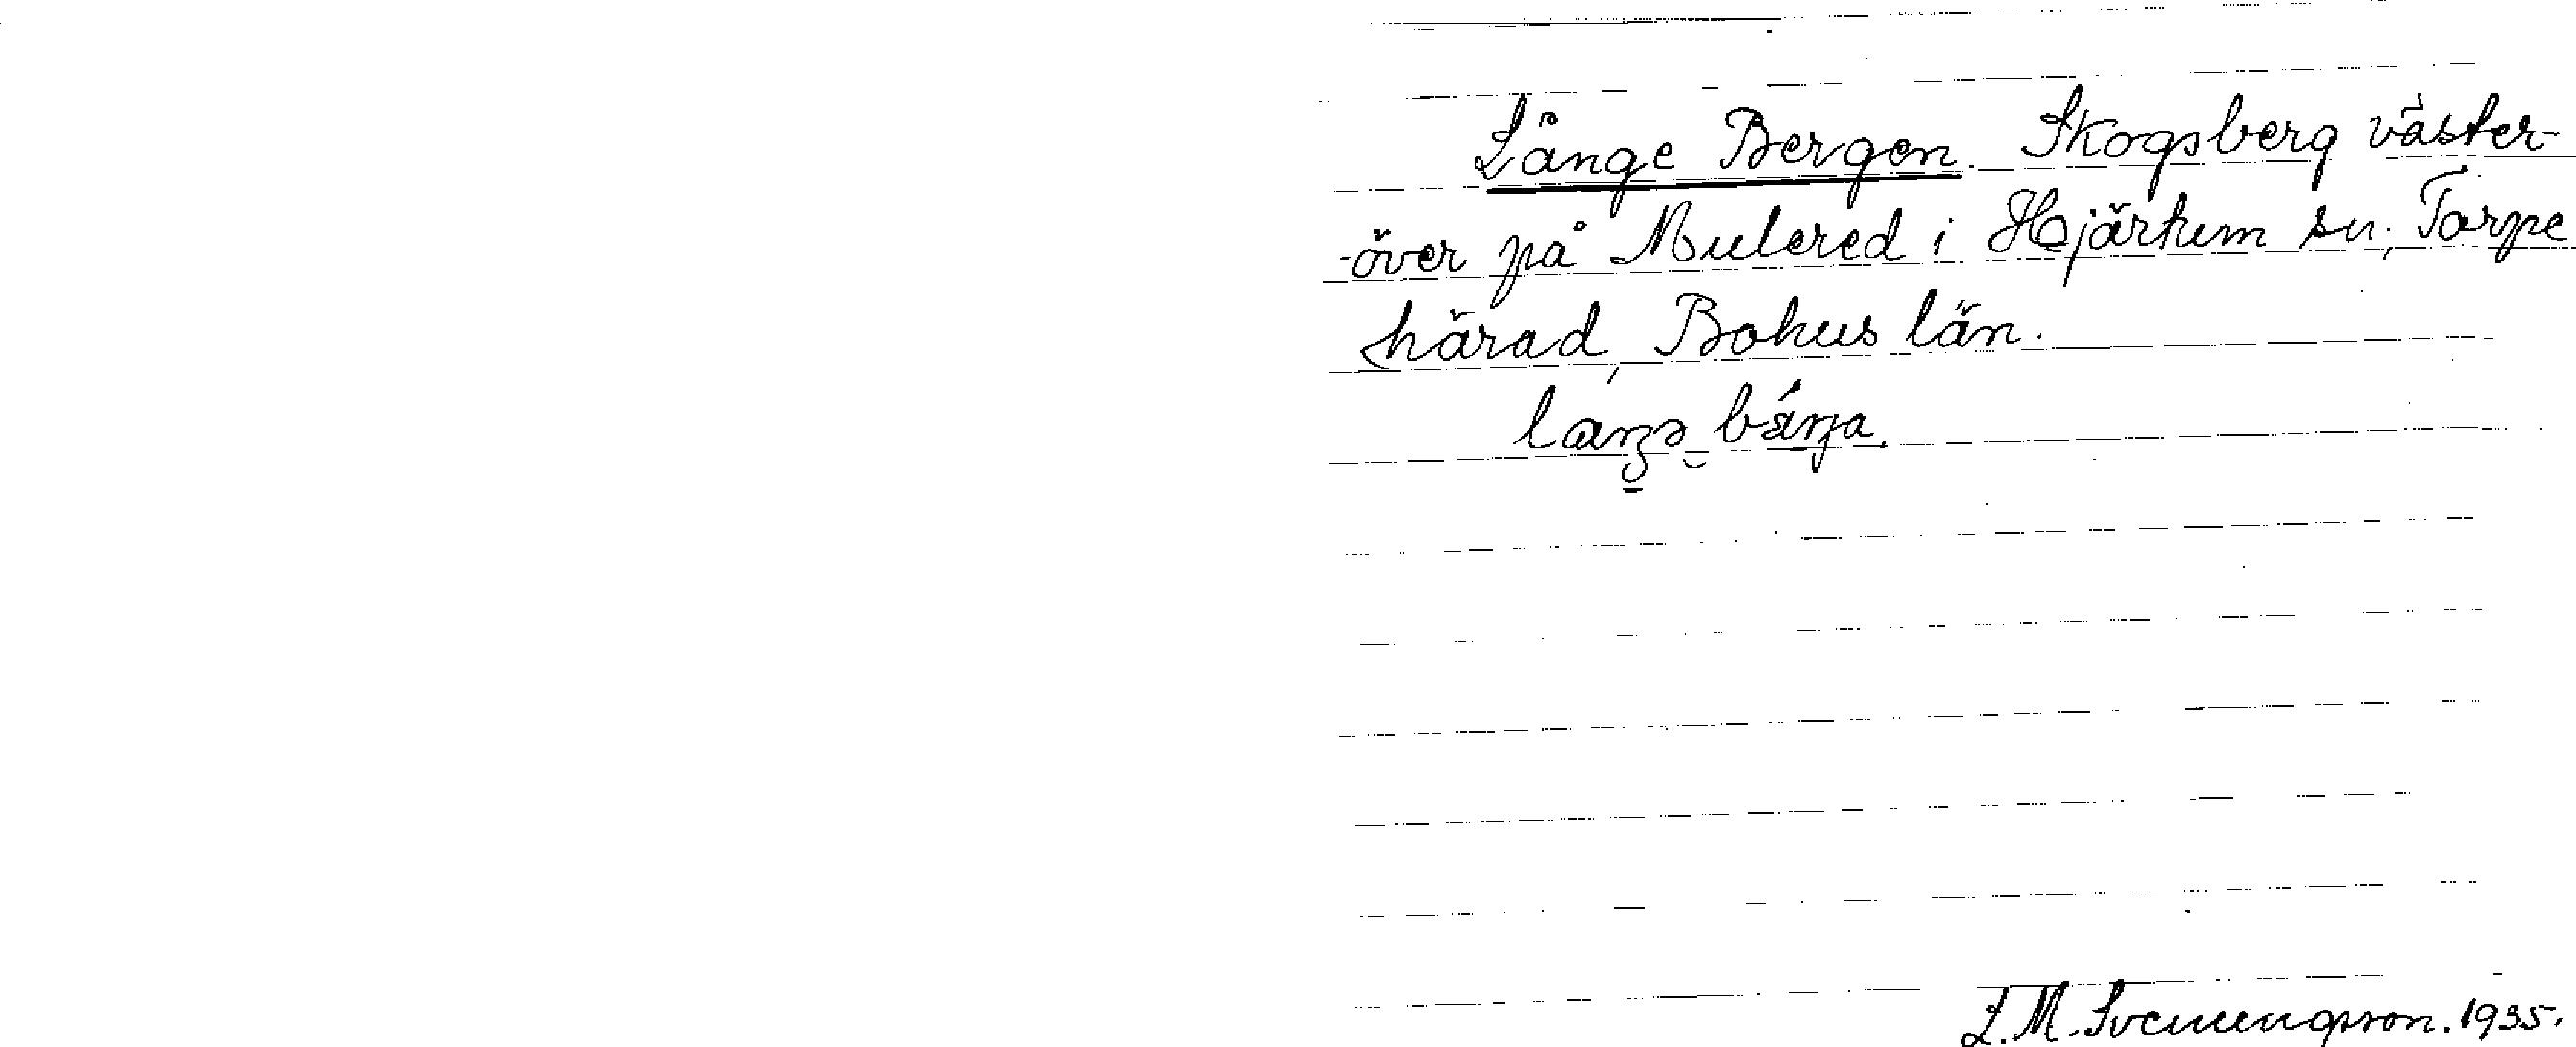 Långe Bergen. Skogsberg väster-
-över på Mulered i Hjärtum sn, Torpe
härad, Bohus län.
L.M. Svenungsson. 1935.